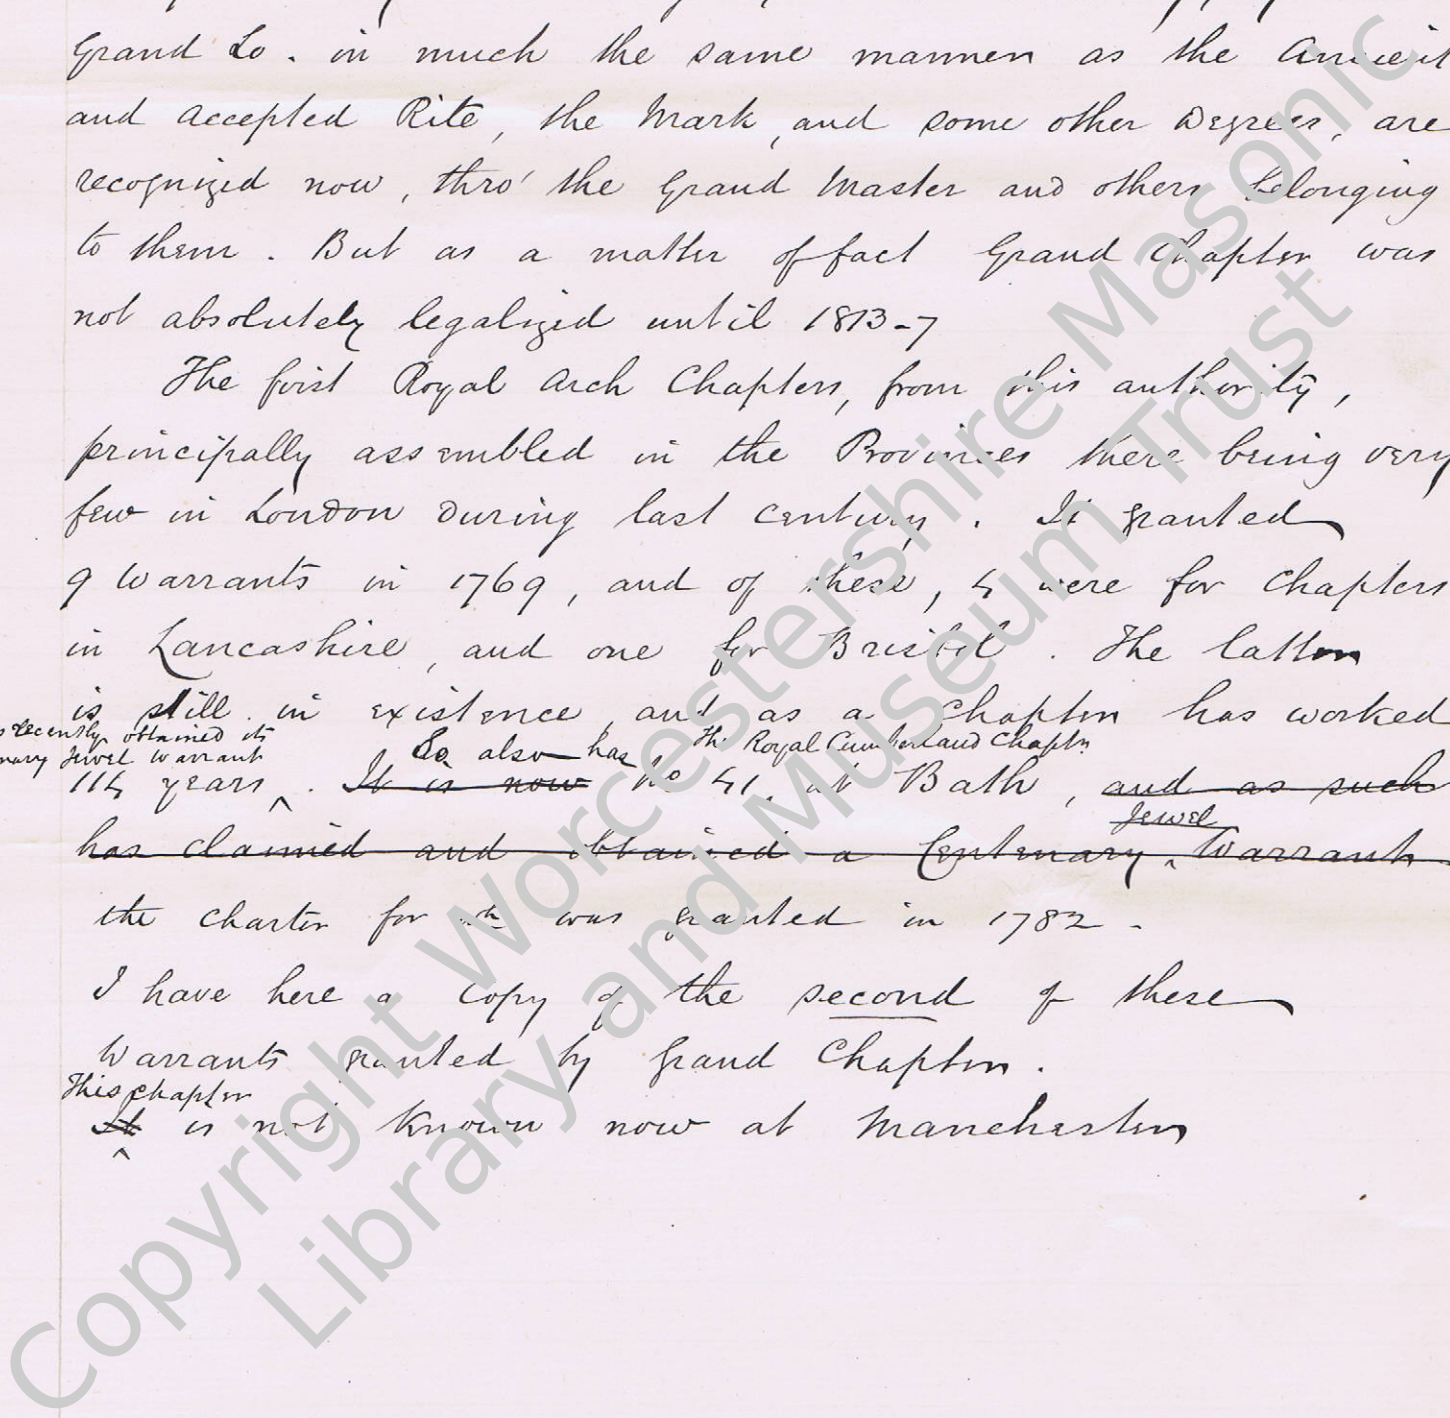 Grand Lo. in much the same manner as the Ancient
and Accepted Rite, the Mark, and some other Degrees, are
recognized now, thro' the Grand Master and others belonging
to them. But as a matter of fact Grand Chapter was
not absolutely legalized until 1813-7
The first Royal Arch Chapters, from this authority,
principally assembled in the Provinces there being very
few in London during last century. It granted
9 Warrants in 1769, and of these, 4 were for Chapters
in Lancashire, and one for Bristol. The latter
is still in existence, and as a Chapter has worked
recently obtained its
Jewel Warrant
So also has The Royal Cumberland Chaptr
114 years ^. It is now No 41. at Bath, and as such
Jewel
has claimed and obtained a Centenary ^ Warrant
the charter for wh was granted in 1782.
I have here a Copy of the second of these
Warrants granted by Grand Chapter.
This Chapter
It is not known now at Manchester
Copyright Worcestershire Masonic
Library and Museum Trust